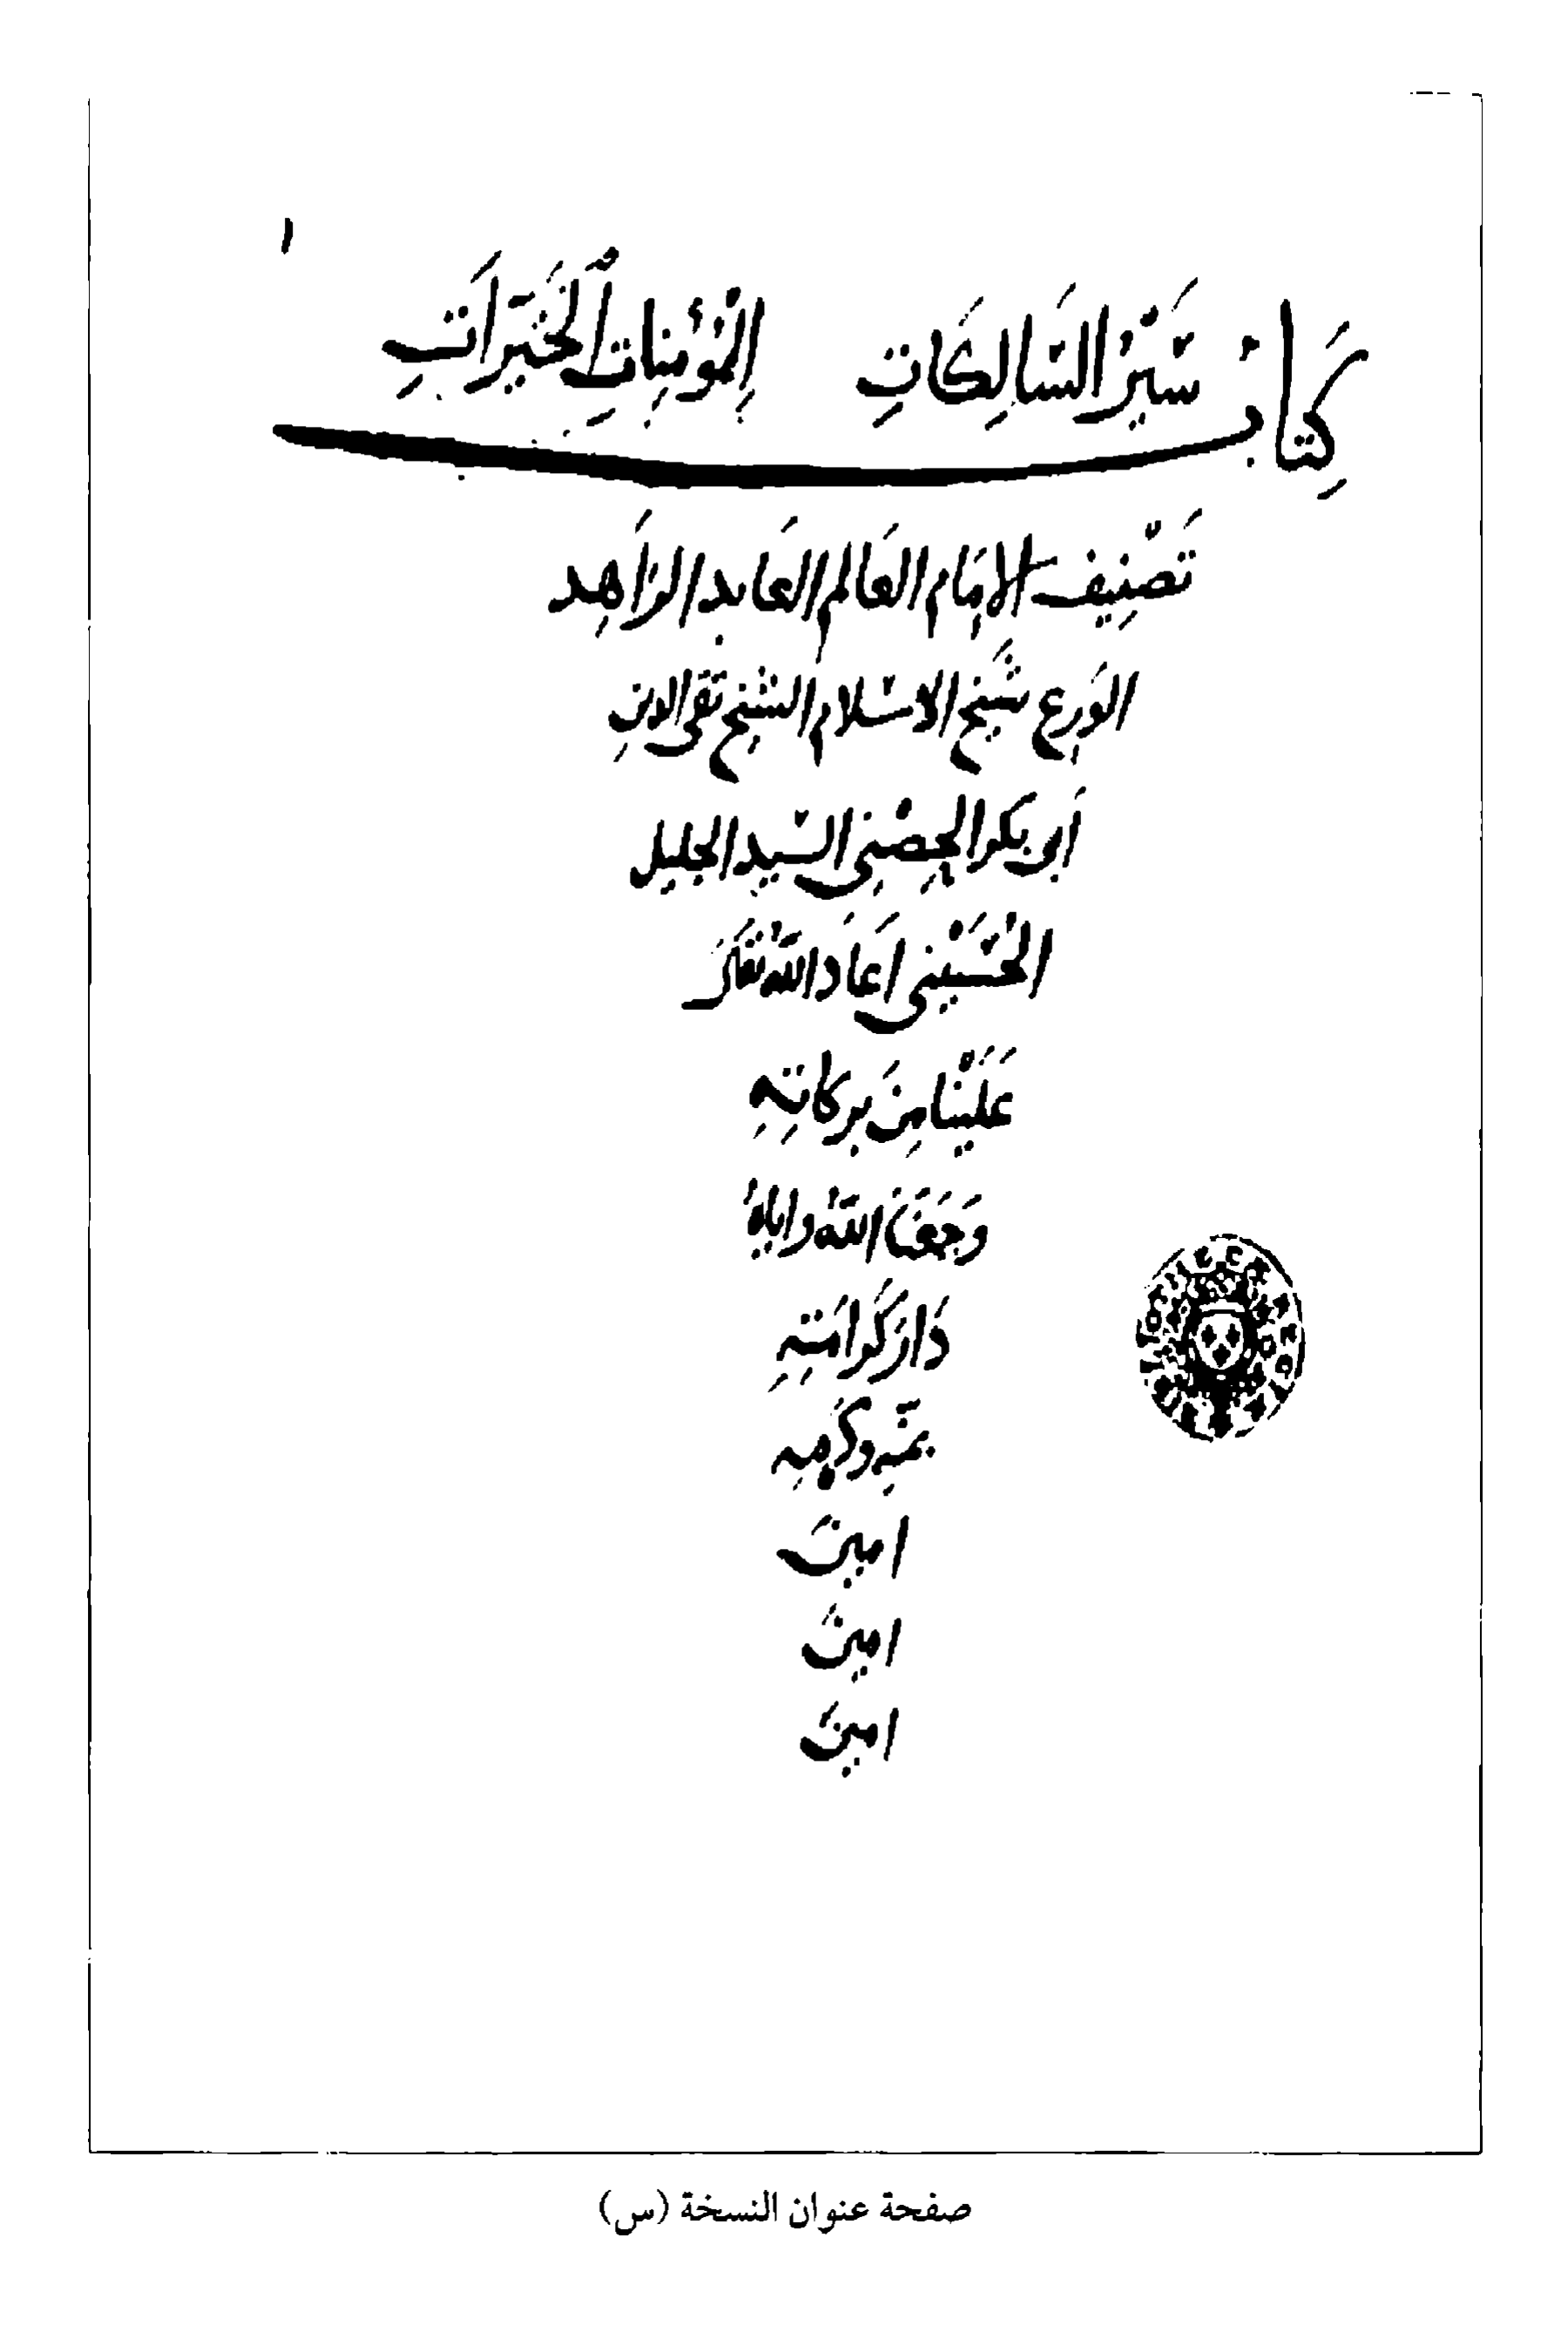 ١
كِتَابُ سَيْر السَّالِكَاتِ الْمُؤْمِنَاتِ الْخَيِّرَاتِ
تَصْنِيف الإمَام العَالم العَابد الزَاهِد
الوَرِع شَيْخ الاسْلام الشيخ تقى الدين
أبو بكر الحِصْنِي السَّيد الجليل
الحُسَيْنِي اعَادَ اللَّهُ
عَلَيْنَا مِنَ بركاتِهِ
وَجمَعَنَا اللَّهُ واياهُ
دَار كَرَامَتِهِ
بمَنِّهِ وكَرمِهِ
امينَ
امينَ
امينَ
صفحة عنوان النسخة (س)